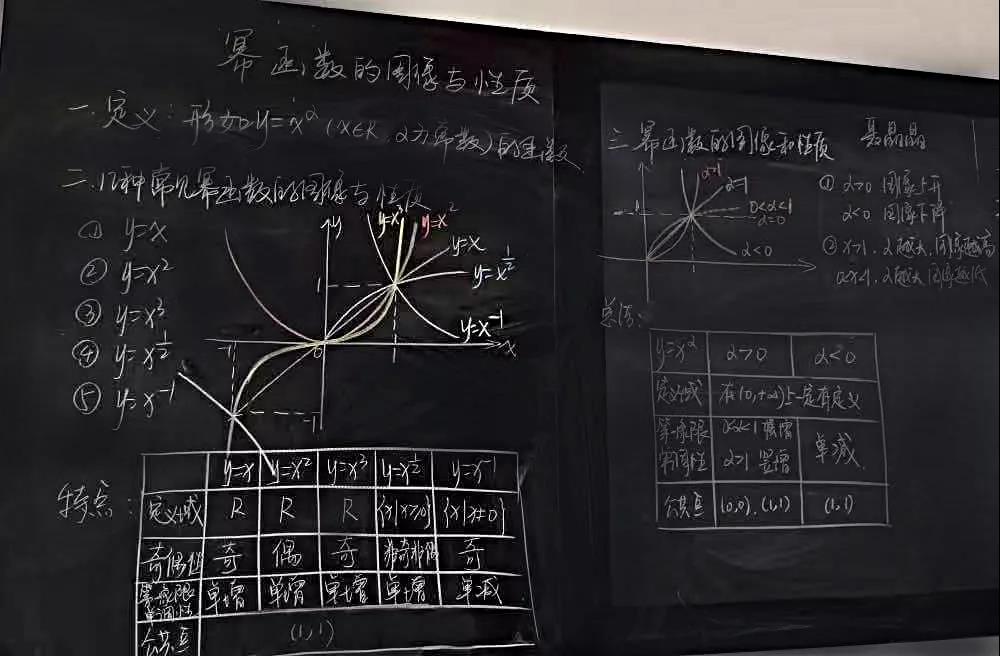 幂函数的图像与性质
一.定义：形如y=x^α (x∈R, α为常数)的函数
二.几种常见幂函数的图像与性质
① y=x
② y=x²
③ y=x³
④ y=x^½
⑤ y=x⁻¹
y
y=x³
y=x²
y=x
y=x^½
y=x⁻¹
1
-1
0
x
-1
特点：
y=x y=x² y=x³ y=x^½ y=x⁻¹
定义域 R R R {x|x≥0} {x|x≠0}
奇偶性 奇 偶 奇 非奇非偶 奇
第一象限单调性 单增 单增 单增 单增 单减
公共点 (1,1)
三.幂函数的图像和性质 聂晶晶
α>1
α=1
0<α<1
α=0
α<0
① α>0 图像上升
α<0 图像下降
② x>1, α越大,图像越高
0<x<1, α越大 图像越低
总结：
y=x^α α>0 α<0
定义域 在(0,+∞)上一定有定义
第一象限 0<α<1 缓增
单调性 α>1 陡增 单减
公共点 (0,0),(1,1) (1,1)